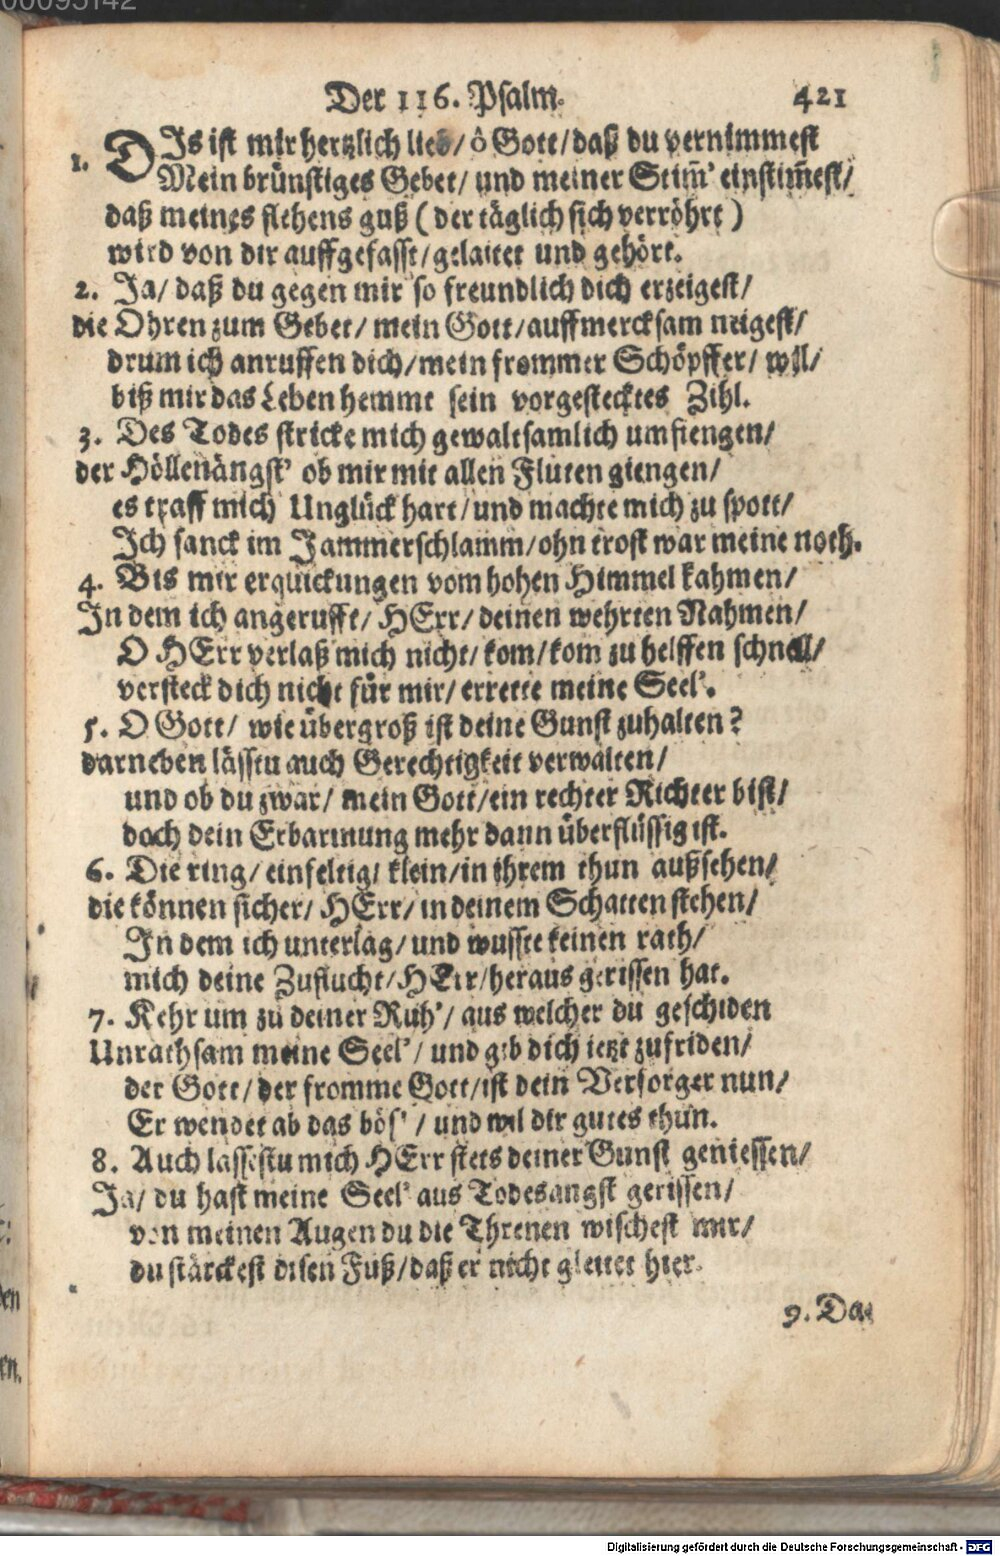 00095142
Der 116. Psalm. 421
1. DIs ist mir hertzlich lieb/ ô Gott/ daß du vernimmest
Mein brünstiges Gebet/ und meiner Stim̃' einstim̃est/
daß meines flehens guß (der täglich sich verröhrt)
wird von dir auffgefasst/ gelaitet und gehört.
2. Ja/ daß du gegen mir so freundlich dich erzeigest/
die Ohren zum Gebet/ mein Gott/ auffmercksam neigest/
drum ich anruffen dich/ mein frommer Schöpffer/ wil/
biß mir das Leben hemmt sein vorgestecktes Zihl.
3. Des Todes stricke mich gewaltsamlich umfiengen/
der Höllenängst' ob mir mit allen Fluten giengen/
es traff mich Unglück hart/ und machte mich zu spott/
Ich sanck im Jammerschlamm/ ohn trost war meine noth.
4. Bis mir erquickungen vom hohen Himmel kahmen/
In dem ich angerufft/ HErr/ deinen wehrten Nahmen/
O HErr verlaß mich nicht/ kom/ kom zu helffen schnell/
versteck dich nicht für mir/ errette meine Seel'.
5. O Gott/ wie übergroß ist deine Gunst zuhalten?
darneben lässtu auch Gerechtigkeit verwalten/
und ob du zwar/ mein Gott/ ein rechter Richter bist/
doch dein Erbarmung mehr dann überflüssig ist.
6. Die ring/ einfeltig/ klein/ in ihrem thun außsehen/
die können sicher/ HErr/ in deinem Schatten stehen/
In dem ich unterlag/ und wusste keinen rath/
mich deine Zuflucht/ HErr/ heraus gerissen hat.
7. Kehr um zu deiner Ruh'/ aus welcher du geschiden
Unrathsam meine Seel'/ und gib dich ietzt zufriden/
der Gott/ der fromme Gott/ ist dein Versorger nun/
Er wendet ab das bös'/ und wil dir gutes thun.
8. Auch lassestu mich HErr stets deiner Gunst geniessen/
Ja/ du hast meine Seel' aus Todesangst gerissen/
von meinen Augen du die Threnen wischest mir/
du stärckest disen Fuß/ daß er nicht gleitet hier.
9. Da
Digitalisierung gefördert durch die Deutsche Forschungsgemeinschaft - DFG